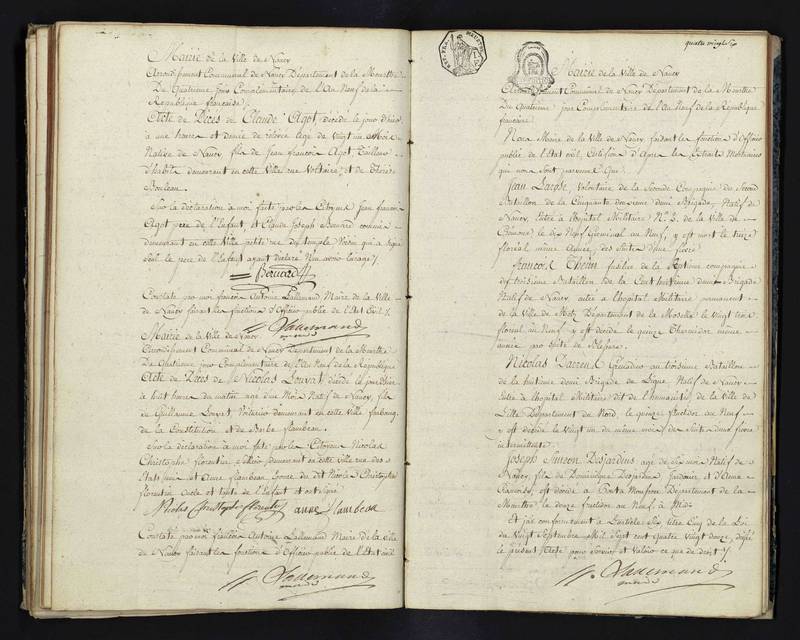 Mairie de la Ville de Nancy
Arrondissement Communal de Nancy Département de la Meurthe
Du Quatrieme jour Complémentaire de l'An Neuf de la
République française.
Acte de Décès de Claude Agot, décédé le jour d'hier
à une heure et demie de relevée age de vingt un Mois
Natif de Nancy fils de Jean françois Agot, Tailleur
d'habits demeurant en cette Ville rue Voltaire, et de Thérèse
Bouleau.
Sur la déclaration à moi faite par les Citoyens Jean françois
Agot pere de l'Enfant, et Claude Joseph Bernard commis
demeurant en cette Ville petite rue du temple qui a signé
seul le pere de l'Enfant ayant déclaré
Bernard
Constaté par moi françois Antoine Lallemand Maire de la Ville
de Nancy faisant les fonctions d'Officier public de l'Etat Civil
Lallemand
maire
Mairie de la Ville de Nancy
Arrondissement Communal de Nancy Département de la Meurthe
Du Quatrieme jour Complémentaire de l'An Neuf de la République
Acte de Décès de Nicolas Louvat décédé le jour d'hier
à huit heures du matin age d'un Mois Natif de Nancy, fils
de Guillaume Louvat Voiturier demeurant en cette Ville faubourg
de la Constitution et de Barbe flambeau.
Sur la déclaration à moi faite par les Citoyens Nicolas
Christophe florentin demeurant en cette Ville rue des
Etats Unis et Anne flambeau Epouse du dit Nicolas Christophe
florentin Oncle et tante de l'Enfant et ont signé
Nicolas Christophe florentin anne flambeau
Constaté par moi françois Antoine Lallemand Maire de la Ville
de Nancy faisant les fonctions d'Officier public de l'Etat Civil
Lallemand
maire
quatre vingt six
Mairie de la Ville de Nancy
Arrondissement Communal de Nancy Département de la Meurthe
Du Quatrieme jour Complémentaire de l'An Neuf de la République
française
Nous Maire de la Ville de Nancy, faisant les fonctions d'Officier
public de l'Etat civil, Certifions d'Après les Extraits Mortuaires
qui nous sont parvenus Que
Jean Volontaire de la Seconde Compagnie du Second
Bataillon de la Cinquante douzieme demi Brigade, Natif de
Nancy, Entré à l'hopital Militaire N.º 2. de la Ville de
le dix Neuf Germinal an Neuf, y est mort le treize
floréal même Année, des suites d'une fievre
françois Thirin fusilier de la Septieme compagnie
du troisieme Bataillon de la Cent huitieme demi Brigade
Natif de Nancy entré à l'hopital Militaire permanent
de la Ville de Metz Département de la Moselle le Vingt trois
floréal an Neuf y est décédé le quinze Thermidor même
année par suite de Blessure.
Nicolas Grenadier au troisieme Bataillon
de la huitieme demi Brigade de Ligne Natif de Nancy
entré à l'hopital Militaire dit de l'humanité de la Ville de
Lille Département du Nord, le quinze fructidor an Neuf
y est décédé le Vingt un du même mois des suites d'une fievre
intermittente.
Joseph Simon Desjardins age de six mois Natif de
Nancy, fils de Dominique Desjardins Jardinier et d'Anne
est décédé à Pont à Mousson Département de la
Meurthe, le douze fructidor an Neuf, à Midi
Et j'ai conformément à l'article Six titre Cinq de la Loi
du Vingt Septembre Mil Sept Cent quatre Vingt douze, rédigé
le présent Acte pour servir et Valoir ce que de droit
Lallemand
maire